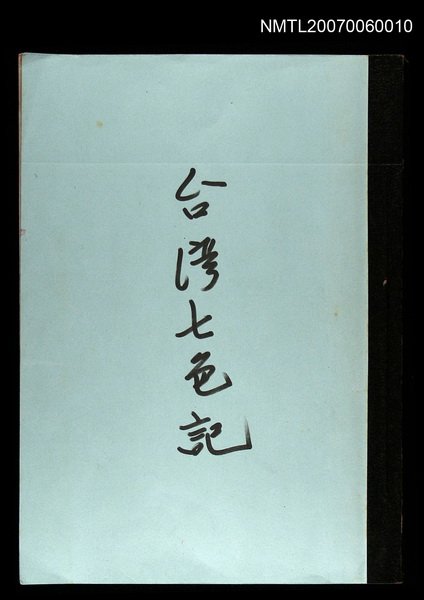 NMTL20070060010
台湾七色記